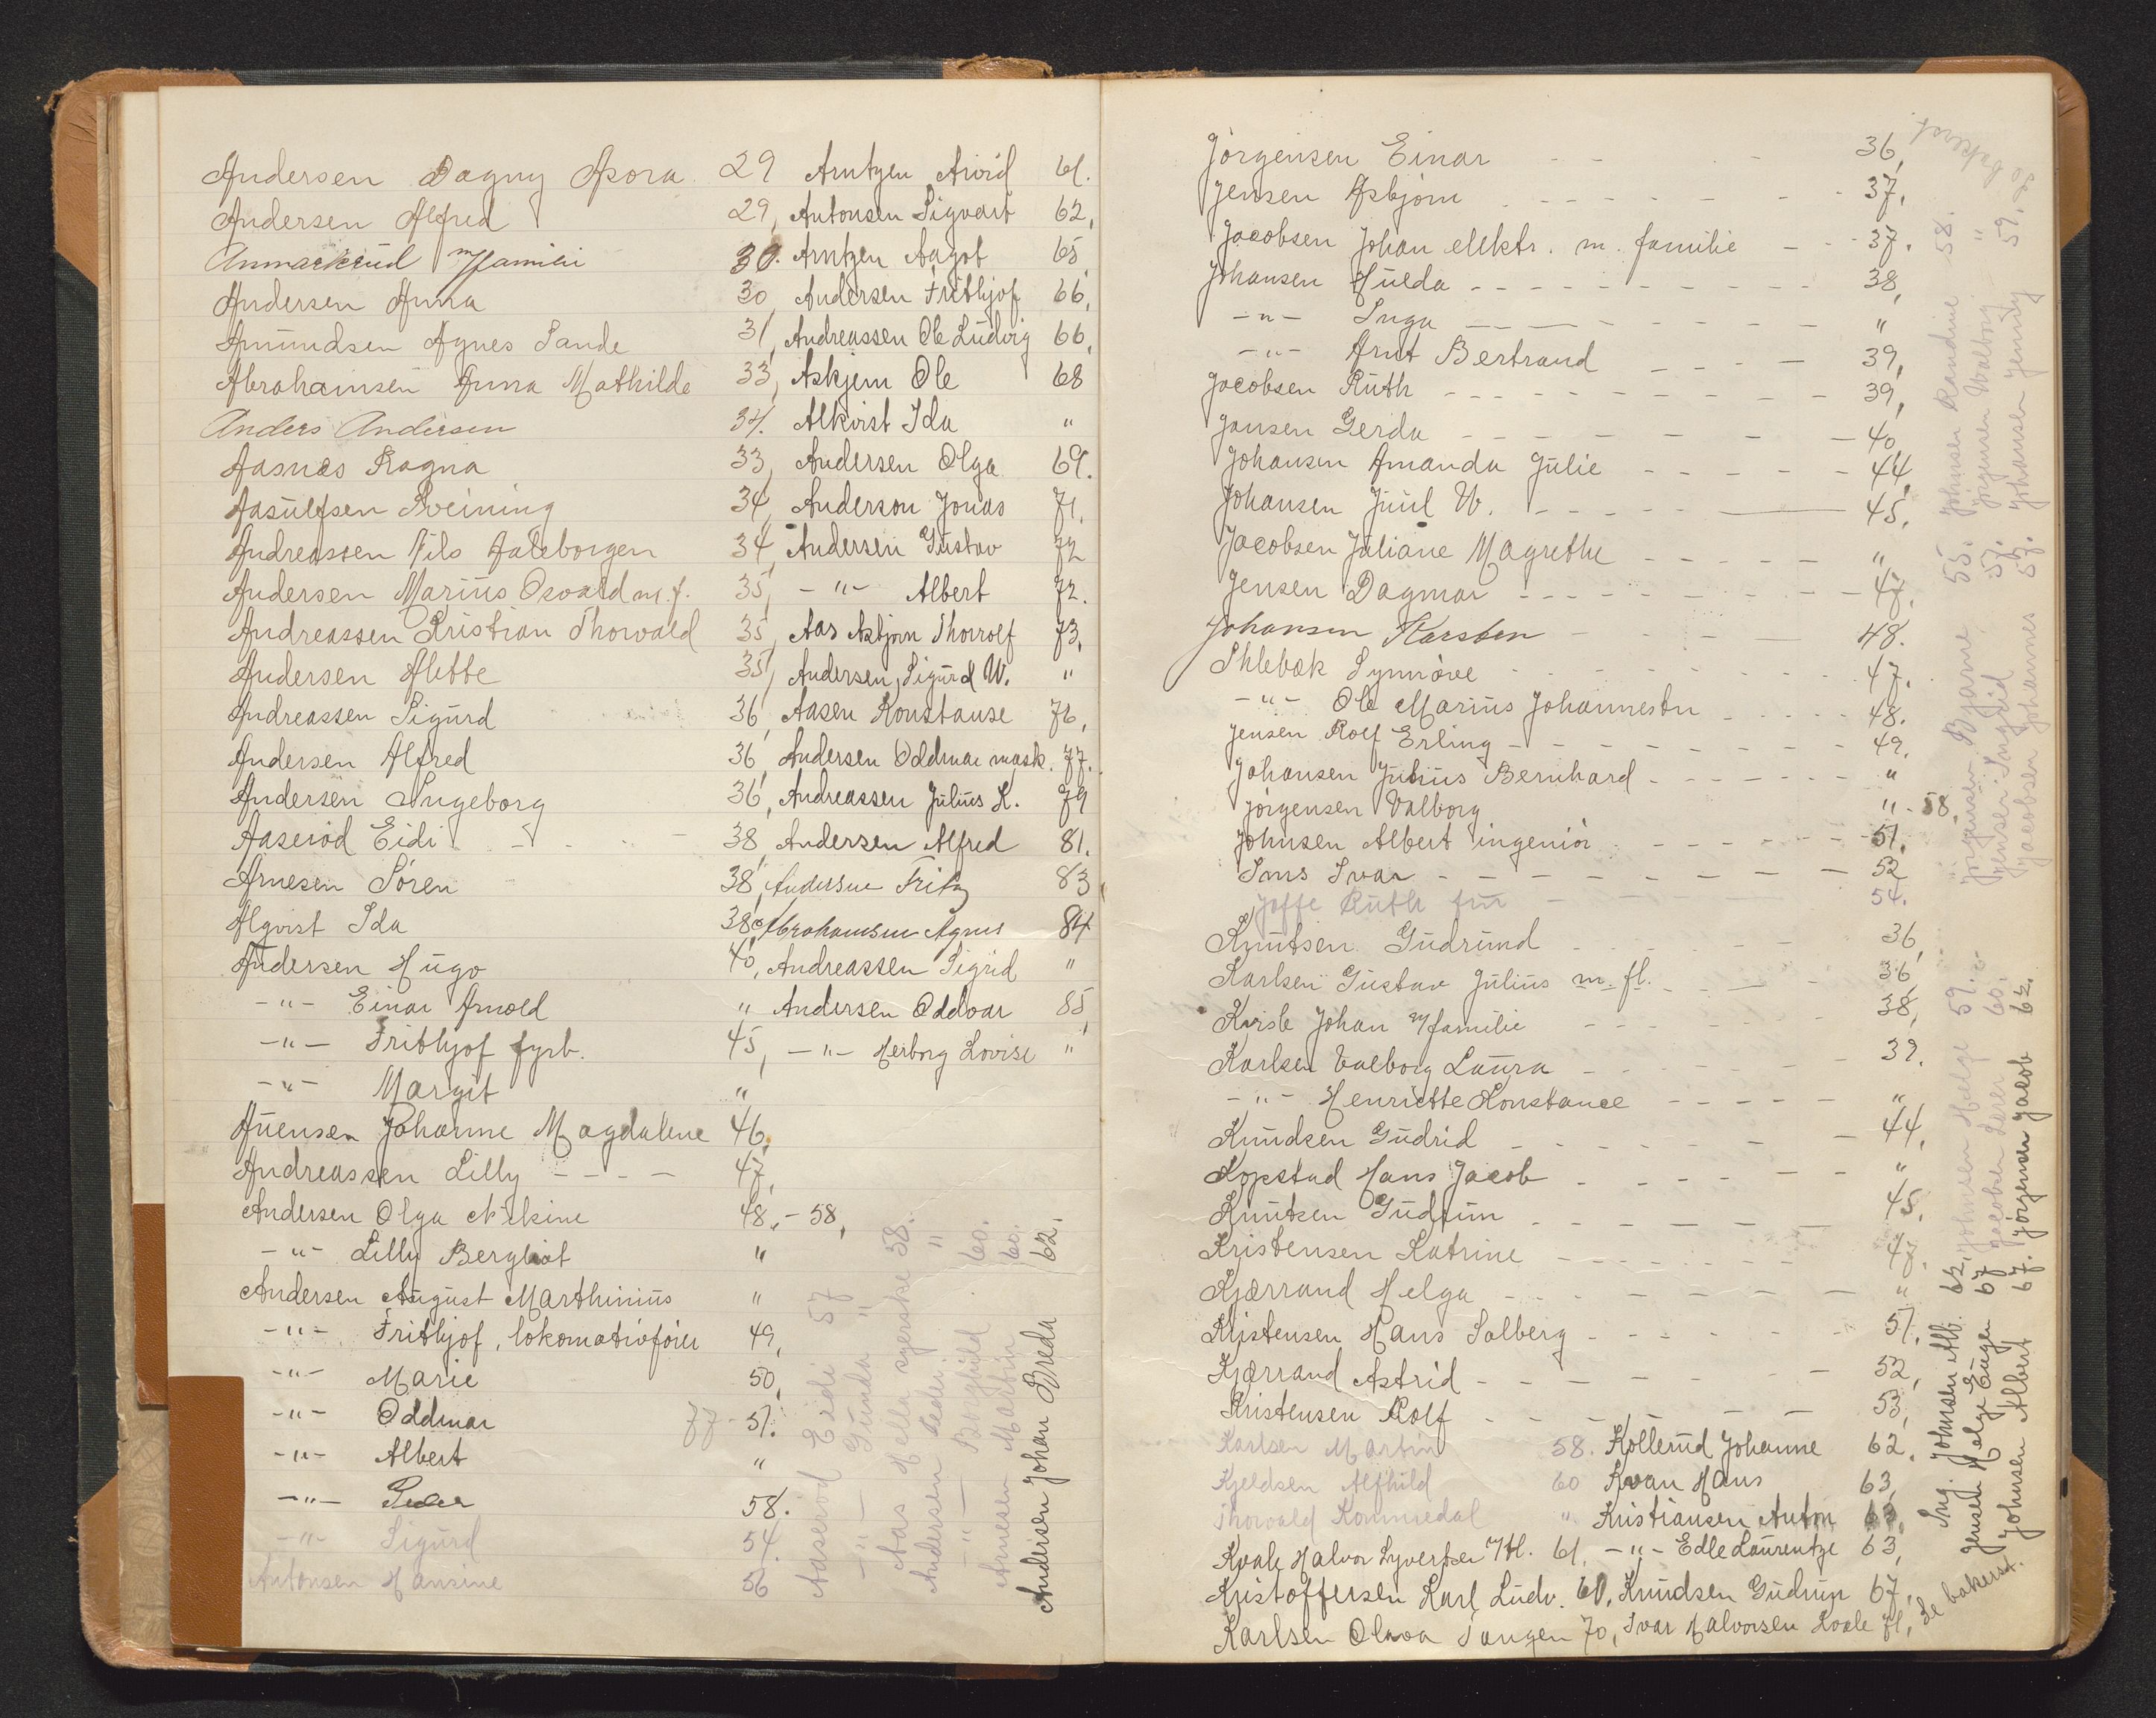 Andersen Dagny Asora 29
Andersen Alfred 29,
Anmarkrud m/familie 30.
Andersen Anna 30,
Amundsen Agnes Sande 31,
Abrahamsen Anna Mathilde 33,
Anders Andersen 34.
Aasnes Ragna 33,
Aasulfsen Sveining 34,
Andreassen Nils Aaleborgen 34,
Andersen Marius Osvald m.f. 35,
Andreassen Kristian Thorvald 35,
Andersen Alette 35,
Andreassen Sigurd 36,
Andersen Alfred 36,
Andersen Ingeborg 36,
Aaseröd Eidi 38,
Arnesen Sören 38,
Alqvist Ida 38
Andersen Hugo 40,
-"- Einar Arnold "
-"- Frithjof fyrb. 45,
-"- Margit "
Auensen Johanne Magdalene 46,
Andreassen Lilly - - - - 47,
Andersen Olga Nikine 48,-58,
-"- Lilly Bergliot "
Andersen August Marthinius "
-"- Frithjof, lokomotivförer 49,
-"- Marie 50,
-"- Oddmar 77-51.
-"- Albert "
-"- Peder 58.
-"- Sigurd 54.
Antonsen Hansine 56
Arntzen Arvid 61.
Antonsen Sigvart 62,
Arntzen Aagot 65,
Andersen Frithjof 66,
Andreassen Ole Ludvig 66,
Askjem Ole 68
Alkvist Ida "
Andersen Olga 69.
Anderson Jonas 71.
Andersen Gustav 72
-"- Albert 72.
Aas Asbjörn Thorrolf 73,
Andersen, Sigurd W. "
Aasen Konstanse 76,
Andersen Oddmar mask. 77.
Andreassen Julius K. 79
Andersen Alfred 81.
Andersen Fritz 83
Abrahamsen Agnes 84
Andreassen Sigrid "
Andersen Oddvar 85,
-"- Herborg Lovise "
Aaseröd Eidi 57
-"- Gunda "
Aas Hella syerske 58.
Anderssen Peder "
-"- Borghild 60.
Arnesen Martin 60.
Andersen Johan Breda 62.
Jörgensen Einar - - - 36,
Jensen Asbjörn - - - - - 37.
Jacobsen Johan elektr. m. familie - - 37.
Johansen Hulda - - - - - - - 38,
-"- Inga - - - - - "
-"- Arnt Bertrand - - - - 39,
Jacobsen Ruth - - - - - - 39,
Jansen Gerda - - - - - - 40,
Johansen Amanda Julie - - - - - 44,
Johansen Juul W. - - - - - 45.
Jacobsen Juliane Magrethe - - - - - "
Jensen Dagmar - - - - - - - 47.
Johansen Karsten - - - - 48.
Ihlebæk Synnöve - - - - - 47.
-"- Ole Marius Johannesen - - - - 48.
Jensen Rolf Erling - - - - - - 49.
Johansen Julius Bernhard - - - - - "
Jörgensen Valborg "-58,
Johnsen Albert ingeniör - - - - - 51.
Ims Ivar - - - - - - - 52
Joffe Ruth frü - - - - 54.
Knutsen Gudrund - - - - 36,
Karlsen Gustav Julius m. fl. - - - 36,
Kvisle Johan m/familie - - - - 38,
Karlsen Valborg Laura - - - - - 39.
-"- Henriette Konstance - - - - - "
Knudsen Gudrid - - - - - - 44.
Kopstad Hans Jacob - - - - - "
Knutsen Gudrun - - - - - - 45,
Kristensen Katrine - - - - - 47.
Kjærrand Helga - - - - - - "
Kristensen Hans Solberg - - - - - 51.
Kjærrand Astrid - - - - - - 52,
Kristensen Rolf - - - - - - 53,
Karlsen Martin 58. Kollerud Johanne 62.
Kjeldsen Alfhild 60 Kvan Hans 63,
Thorvald Kommedal " Kristiansen Anton 63,
Kvale Halvor Syvertsen 61. -"- Edle Laurentze 63,
Kristoffersen Karl Ludv. 61, Knudsen Gudrun 67,
Karlsen Olava Tangen 70, Ivar Halvorsen Kvale 71,
Jörgensen Bjarne 55. Johnsen Randine 58.
Jensen Ingrid 57. Jörgensen Valborg "
Jacobsen Johannes 57. Johansen Jenny 59. Se bakerst.
Ing. Johnsen Alb. 62, Johnsen Helge 59.
Jensen Helge Eugen 67 Jacobsen 60.
Johnsen Albert 67. Jörgensen Jacob 62.
Se bakerst.